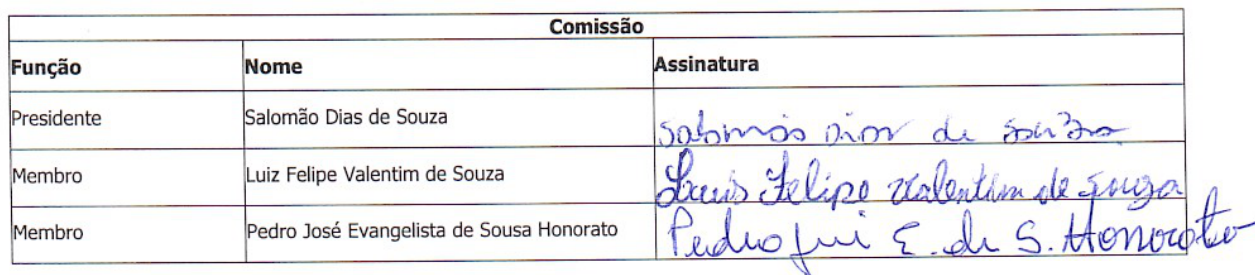 Comissão
Função Nome Assinatura
Presidente Salomão Dias de Souza Salomão Dias de Souza
Membro Luiz Felipe Valentim de Souza Luis Felipe Valentim de Souza
Membro Pedro José Evangelista de Sousa Honorato Pedro José E. de S. Honorato